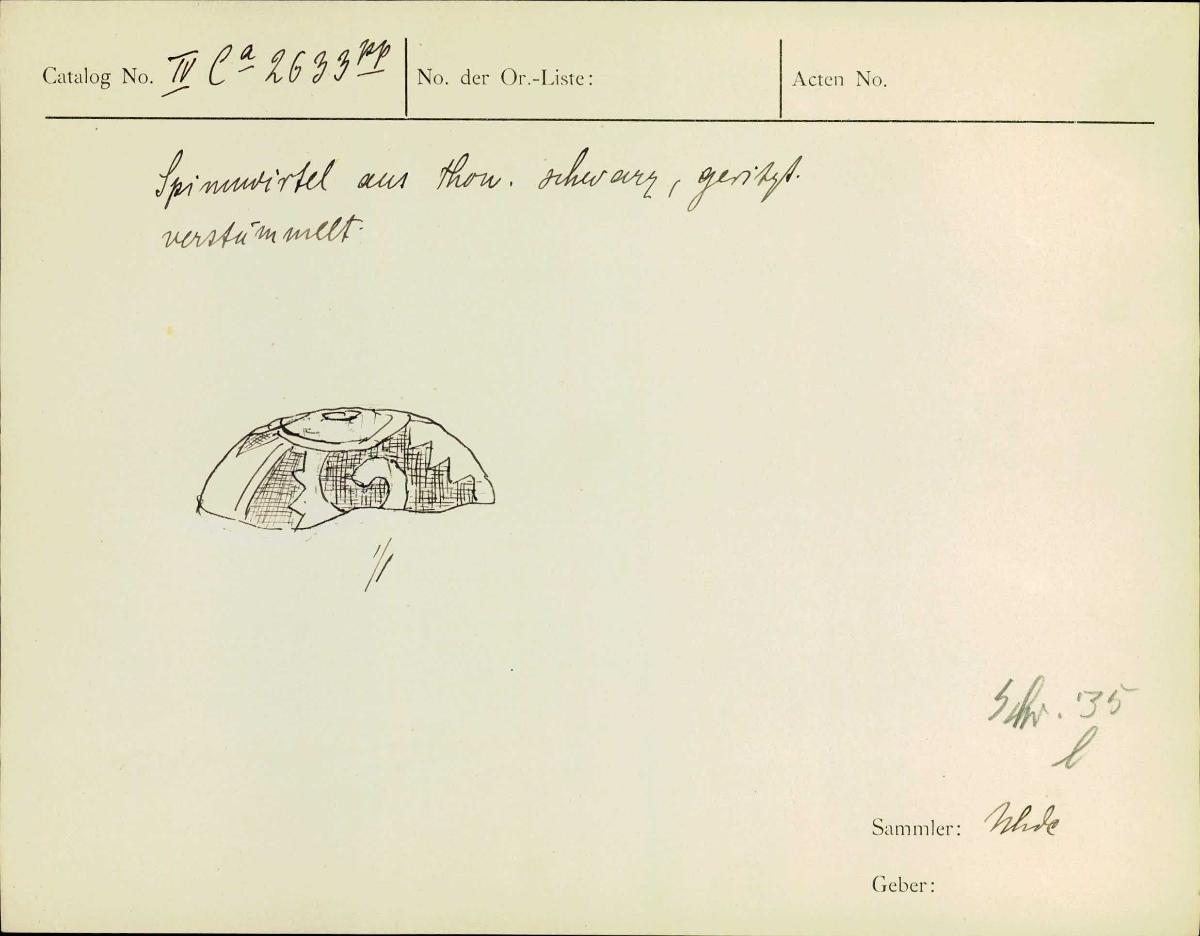 Catalog No. IV Ca 2633pp
No. der Or.-Liste:
Acten No.
Spinnwirtel aus Thon. schwarz, geritzt.
verstümmelt.
1/1
Schr. 35
l
Sammler: Uhde
Geber: